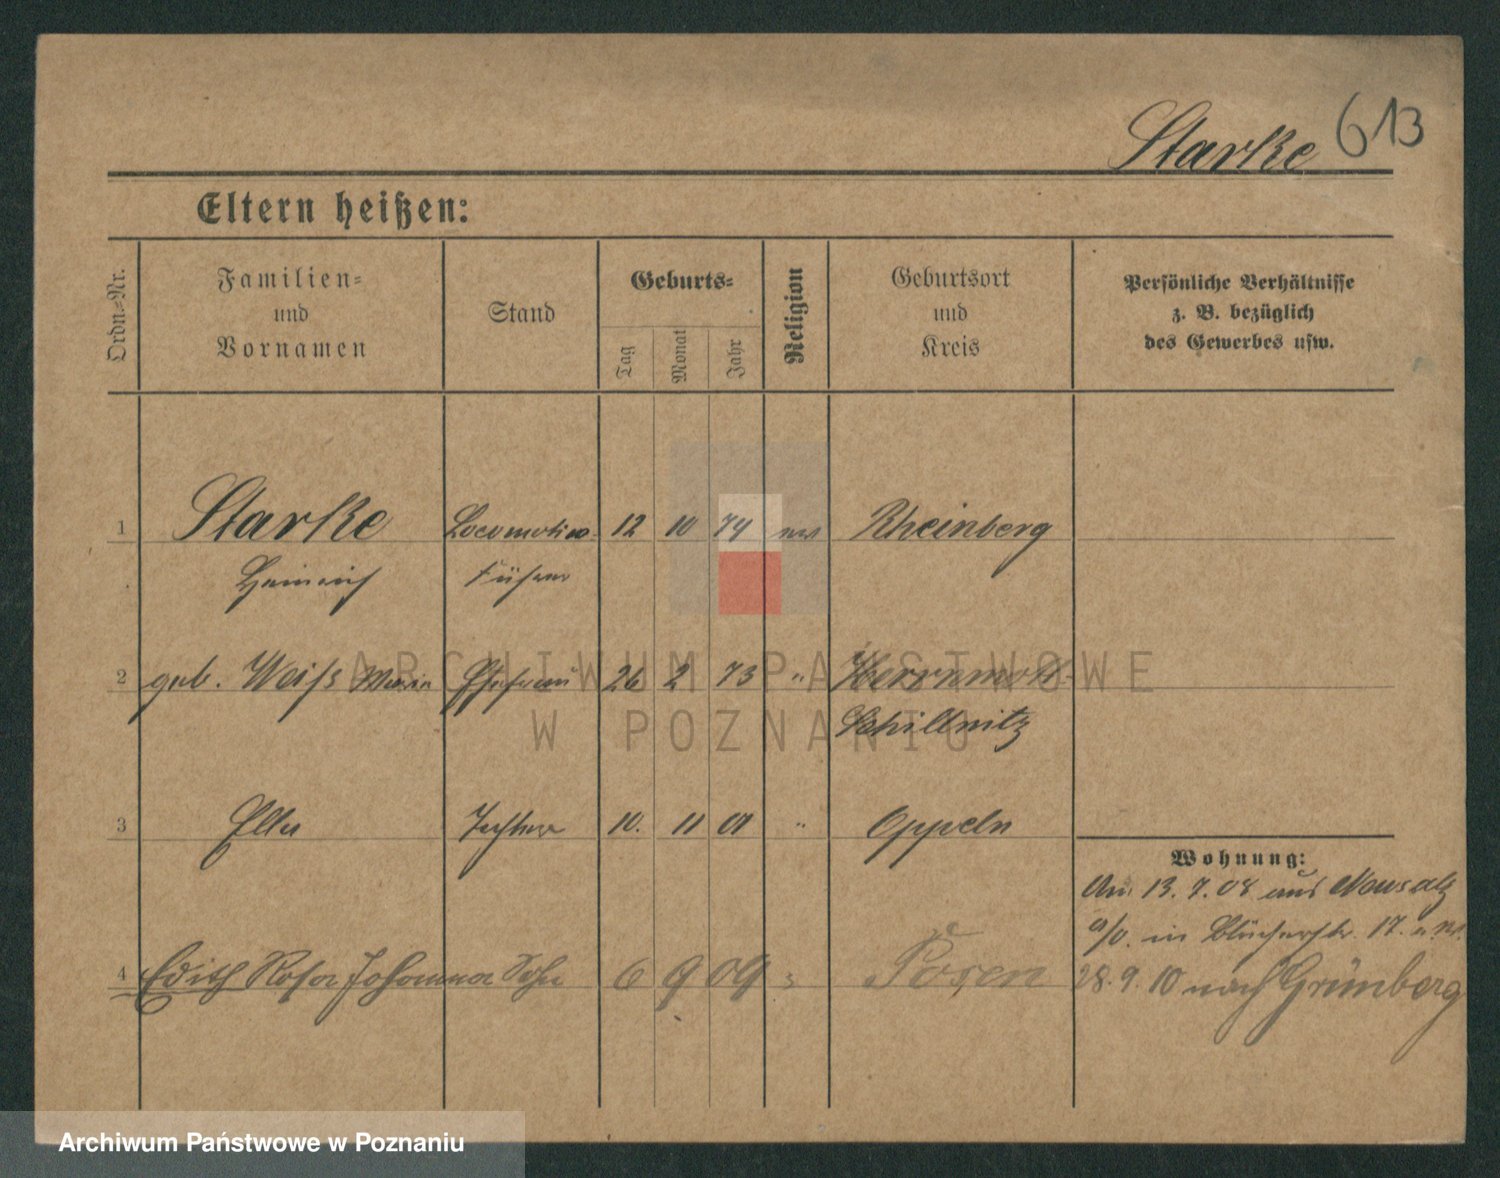 Starke 613
Eltern heißen:
Ordn.-Nr.
Familien-
und
Vornamen
Stand
Geburts-
Tag
Monat
Jahr
Religion
Geburtsort
und
Kreis
Persönliche Verhältnisse
z. B. bezüglich
des Gewerbes usw.
1 Starke Locomotiv- 12 10 74 Rheinberg
Heinrich Führer
2 geb. Weiß Maria Ehefrau 26 2 73 "
Schillnitz
3 Ella Tochter 10. 11 01 " Oppeln
Wohnung:
Am 13. 7. 08 aus Neusalz
a/O. in Blücherstr. 17.
4 Edith Rosa Johanna 6 9 09 Posen
28. 9. 10 nach Grünberg
ARCHIWUM PAŃSTWOWE
W POZNANIU
Archiwum Państwowe w Poznaniu